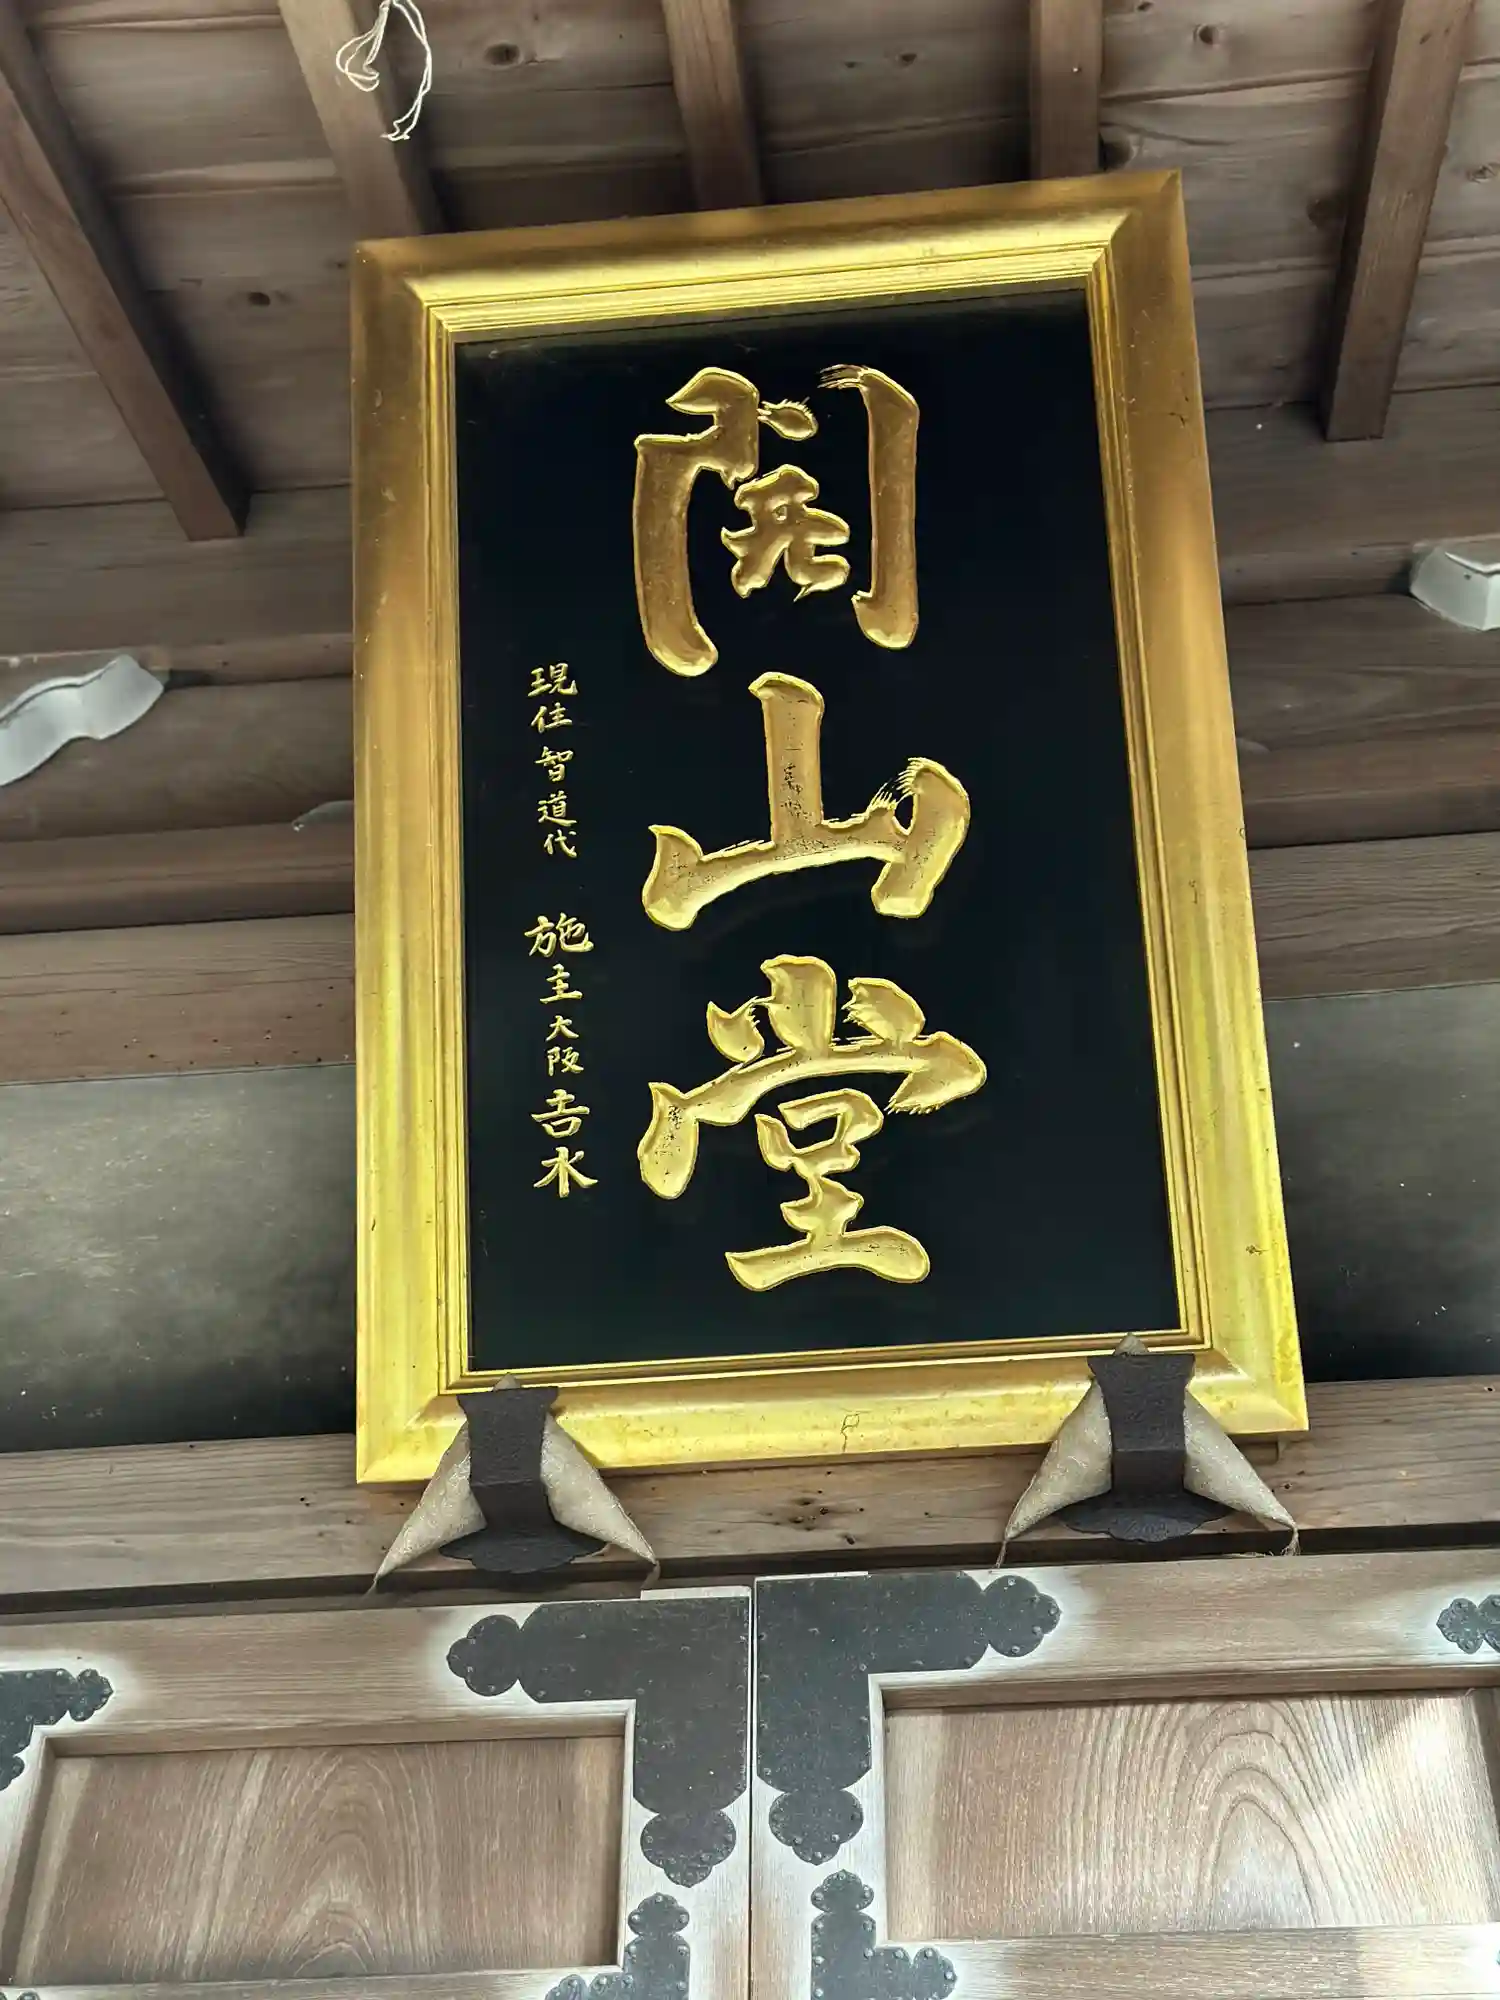 開山堂
現住智道代 施主大阪吉水